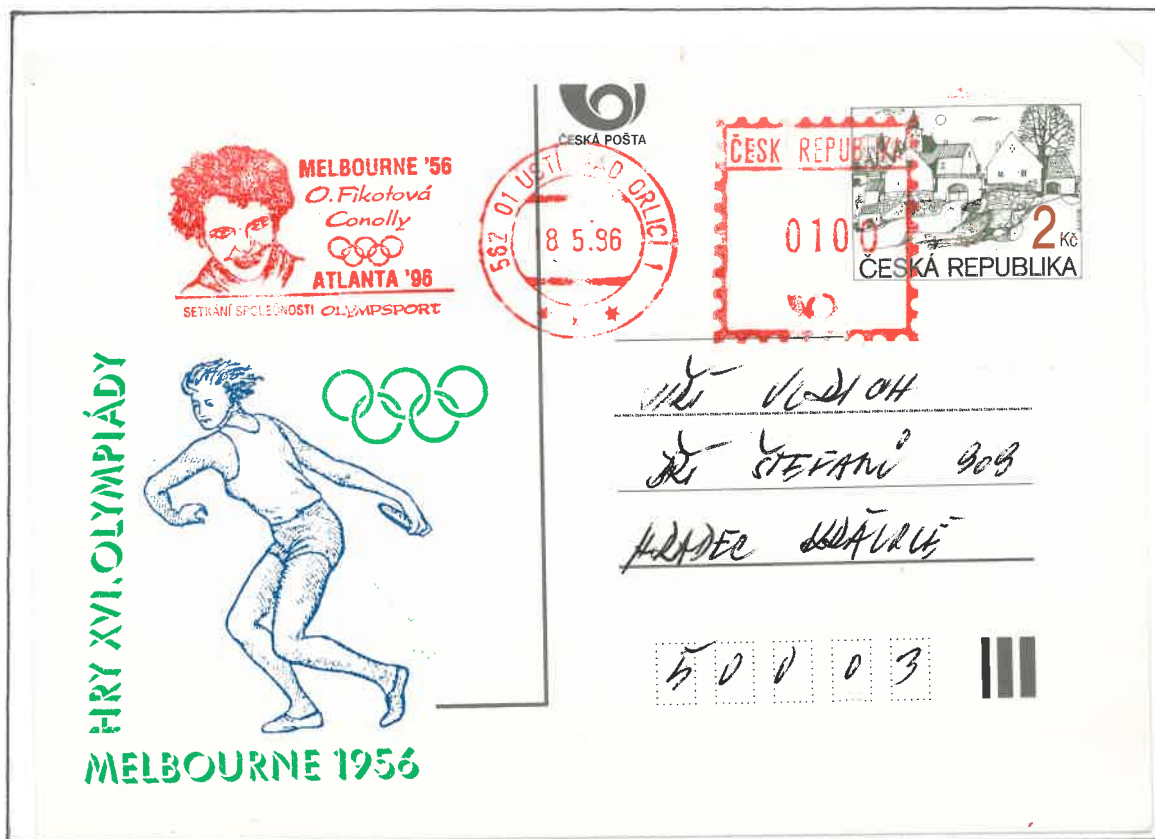 MELBOURNE '56
O. Fikotová
Conolly
ATLANTA '96
SETKÁNÍ SPOLEČNOSTI OLYMPSPORT
ČESKÁ POŠTA
562 01 ÚSTÍ NAD ORLICÍ 1
8 5.96
ČESK REPUBLIKA
0100
2 Kč
ČESKÁ REPUBLIKA
HRY XVI. OLYMPIÁDY
MELBOURNE 1956
JIŘÍ
ŠTEFANŮ 909
HRADEC KRÁLOVÉ
500 03